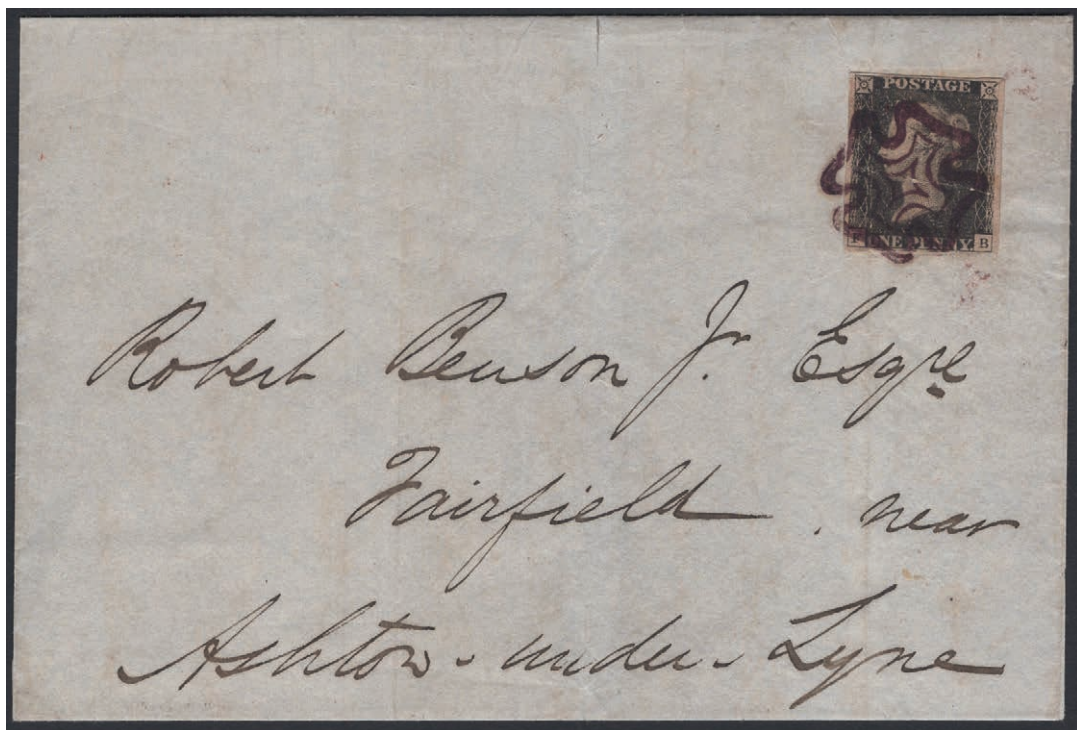 POSTAGE
ONE PENNY B
Robert Benson Jr. Esqre
Fairfield near
Ashton-under-Lyne